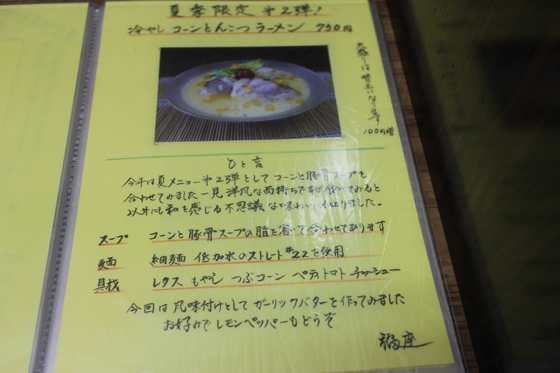 夏季限定 第2弾!
冷やし コーンとんこつラーメン 750円
大盛りは替玉になります
100円増
ひと言
今年は夏メニュー第2弾としてコーンと豚骨スープを
合わせてみました 一見洋風な面持ちですが食べてみると
以外にも和を感じる不思議な味わいに仕上りました。
スープ コーンと豚骨スープの脂を省いて合わせてあります
麺 細麺 低加水のストレート#22を使用
具材 レタス もやし つぶコーン ペティトマト チャーシュー
今回は風味付けとしてガーリックバターを作ってみました
お好みでレモンペッパーもどうぞ